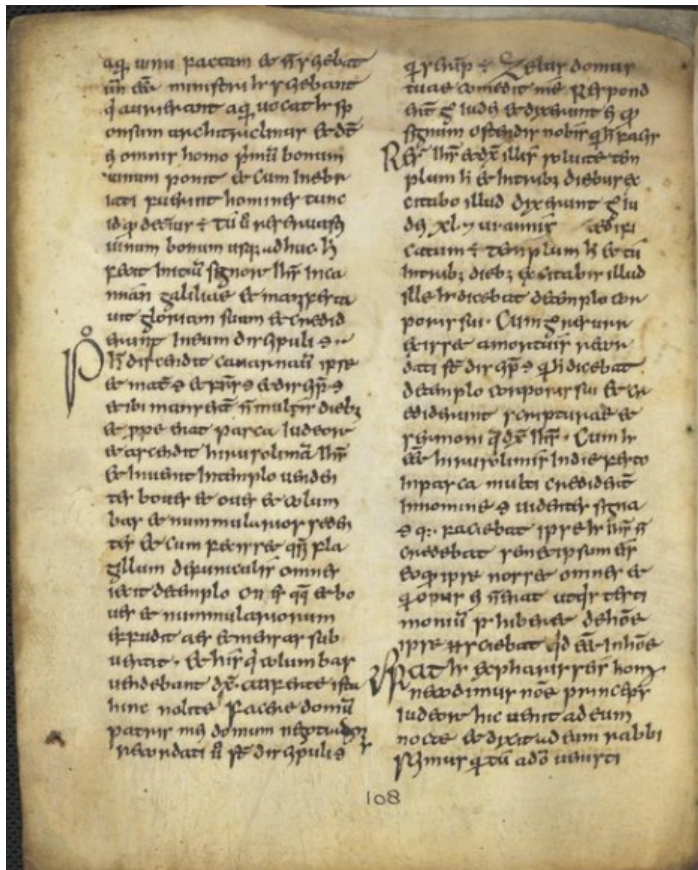 aq̃ uinū factam et ñ sciebat
un̄ eēt ministri h̄ sciebant
q̇ aurierant aq̃ uocat h̄ sp
onsum architriclinus et dc̄
ei omnis homo p̃mū bonum
uinum ponit et cum inebri
iati fuerint homines tunc
id qd deterius ÷ tū ū reseruasti
uinum bonum usq; adhuc h̄
fecit initiū signorum ih̄s in ca
nnan galiliae et manifesta
uit gloriam suam et credid
erunt in eum discipuli ei
P̊ h̄ discendit cafarnauū ipse
et mat̄ ei et fr̄s ei et discip̄ ei
et ibi mansert̄ ñ multis dieb;
et p̱pe erat pasca iudeorum
et ascendit hirusolimā ih̄s
et inuenit in templo uenden
tes boues et oues et colum
bas et nummularios seden
tes et cum fecisset qs̄i fla
gillum de funiculis omnes
ieicit de templo et bo
ues et nummulariorum
effudit aes et mensas sub
uertit · et his q̇ columbas
uendebant dx̄ · auferte ista
hinc nolite facere domū
patris mei domum negotiationis
recordati ū st̄ discipuli ei
q̇ scrip̄ ÷ Zelus domus
tuae comedit me Respond
erit̄ g̊ iudei et dixerunt ei qd
signum ostendis nobis q̇ h̄ facis
Res̄ ih̄s et dx̄ illis soluite tem
plum h̄ et in trib; diebus ex
citabo illud dixerunt g̊ iu
dei xl · ui annis aedifi
catum ÷ templum h̄ et tū
in trib; dieb; excitabis illud
ille h̄ dicebat de templo cor
poris sui · Cum g̊ resurr
exisset a mortuis recor
dati st̄ discip̄ ei q̇ h̄ dicebat
de templo corporis sui et cr
ediderunt scripturae et
sermoni q̄ dx̄ ih̄s · Cum h̄
eēt hirusolimis in die festo
in pasca multi crediderit̄
in nomine ei uidentes signa
ei q; faciebat ipse h̄ ih̄s ñ
credebat semetipsum eis
eo qd ipse nosset omnes et
q̇ opus ei ñ erat ut q̇s testi
monium p̱hiberet de hōe
ipse n̄ sciebat qd eēt in hōe
Erat h̄ ex pharisseis homo
nicodimus nōe princeps
iudeorum hic uenit ad eum
nocte et dixit ad eum rabbi
scimus q̇ tū a dō uenisti
108